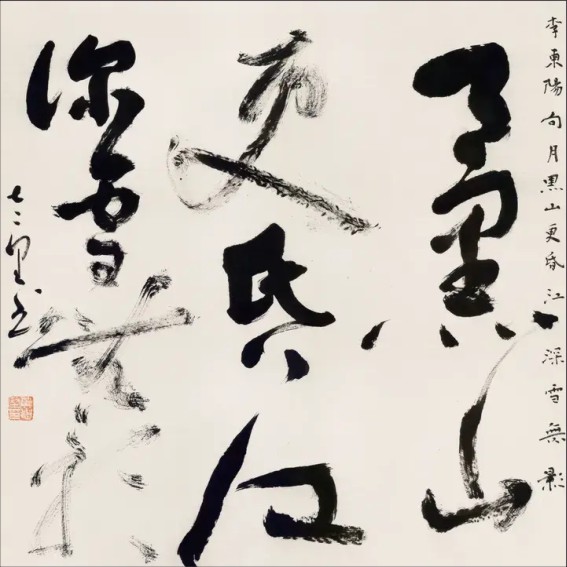 李東陽句月黑山更昏江深雪無影
月黑山
更昏江
深雪無影